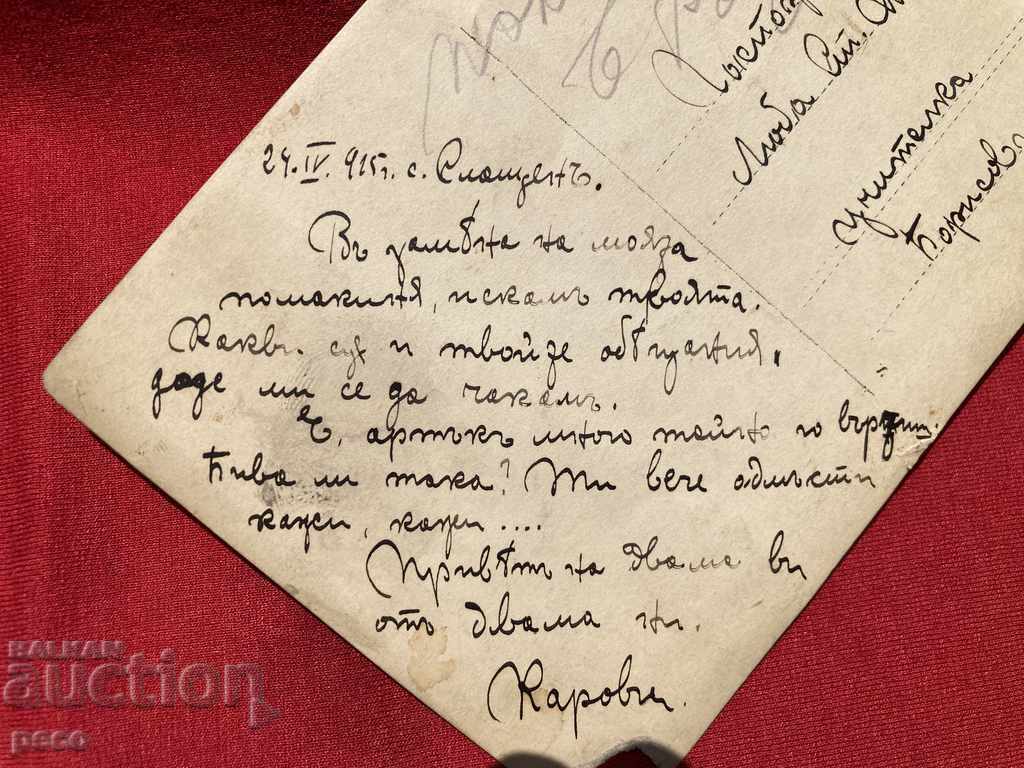 24.IV.915г. с. Слащенъ.
Въ замѣна на мояза
помакиня, искамъ твоята.
Какви сѫ и твойзе обѣщания,
даде ми се да чакамъ.
Е, артъкъ много тайно го
Бива ли така? Ти вече одмъсти
кажи, кажи ....
Привѣтъ на двама ви
отъ двама ни.
Карови.
Люба Ст.
учителка
BALKAN
auction
peco